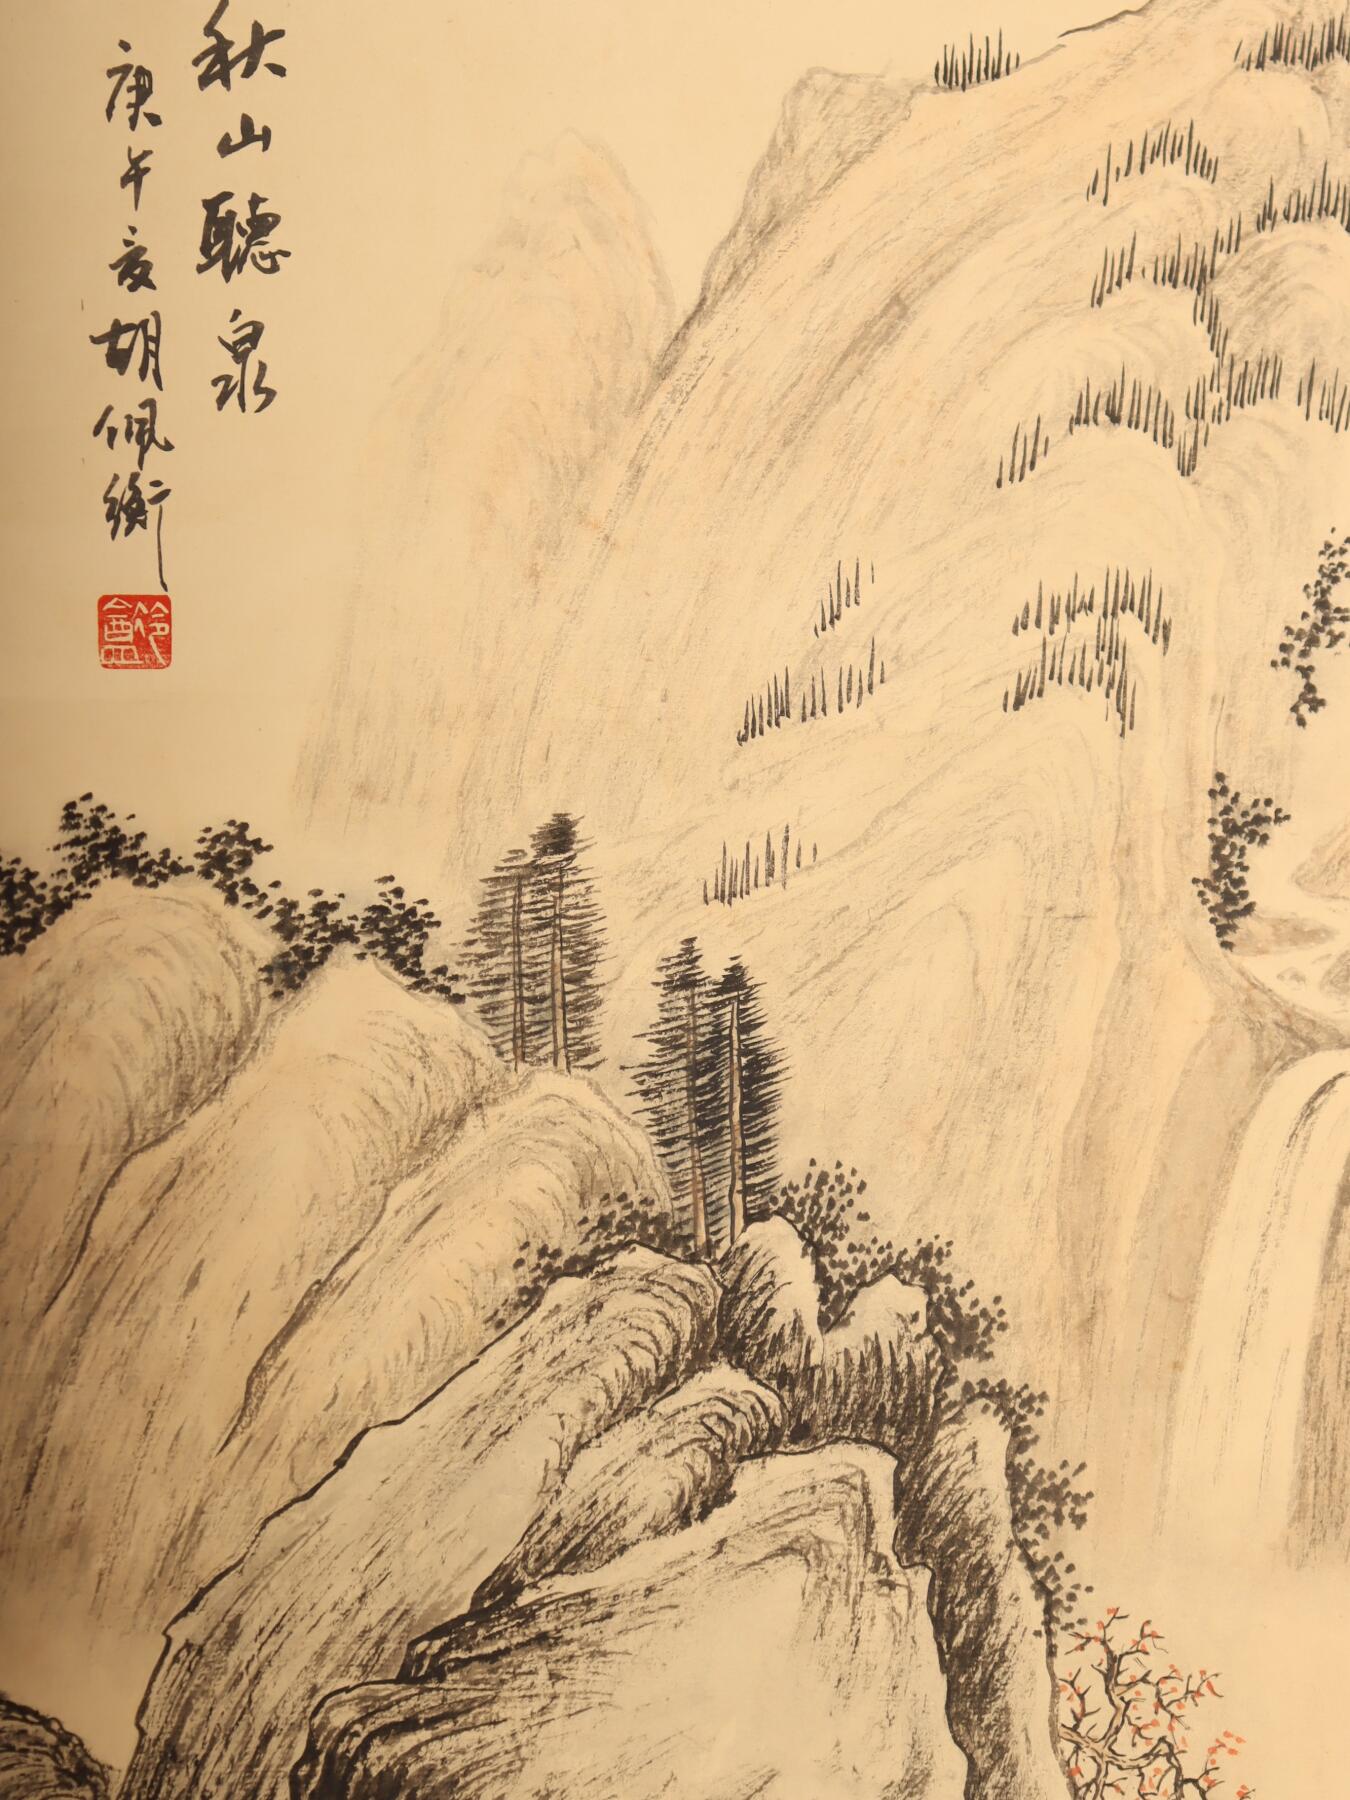 秋山聽泉
庚午夏胡佩衡
冷盦